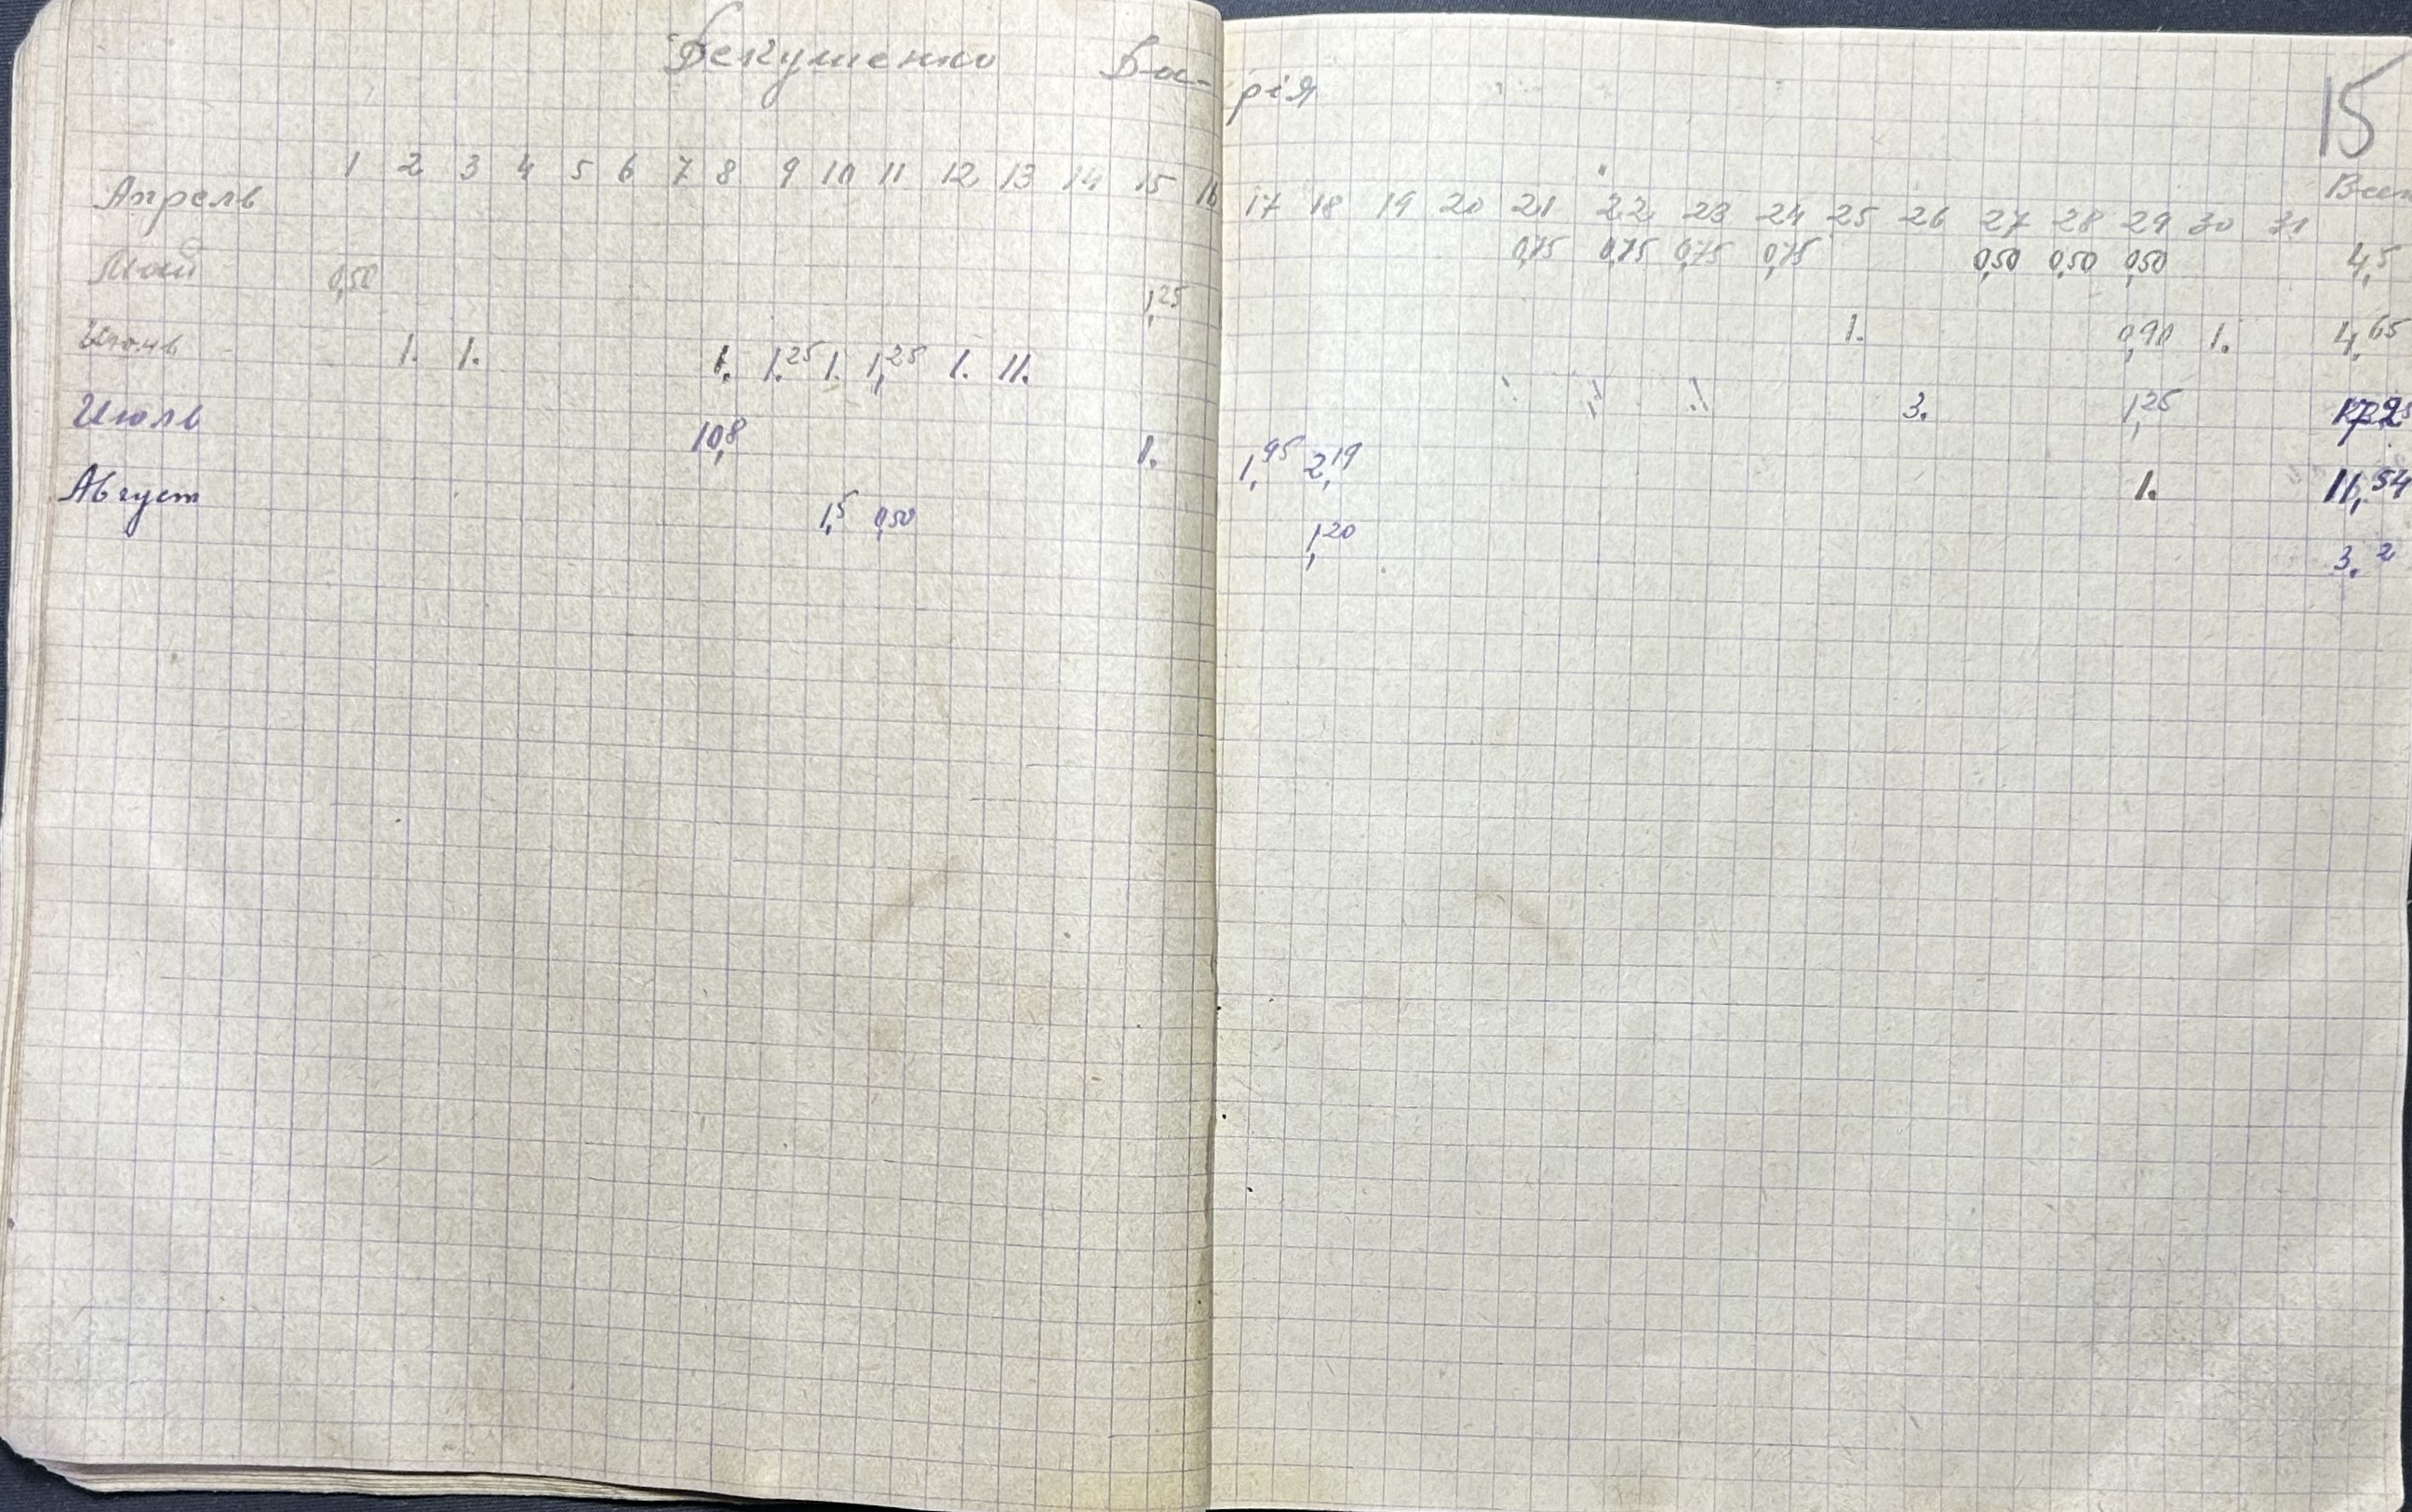 Бекушенко Да-рія
15
Апрель 1 2 3 4 5 6 7 8 9 10 11 12 13 14 15 16 17 18 19 20 21 22 23 24 25 26 27 28 29 30 31
0,75 0,75 0,75 0,75 0,50 0,50 0,50 4,5
Май 0,50 1,25 1. 0,90 1. 4,65
Июнь 1. 1. 1. 1.25 1. 1,25 1. 11. 3. 1,25
Июль 10,8 1. 1,95 2,19 1. 11,54
Август 1,5 0,50 1,20 3.2